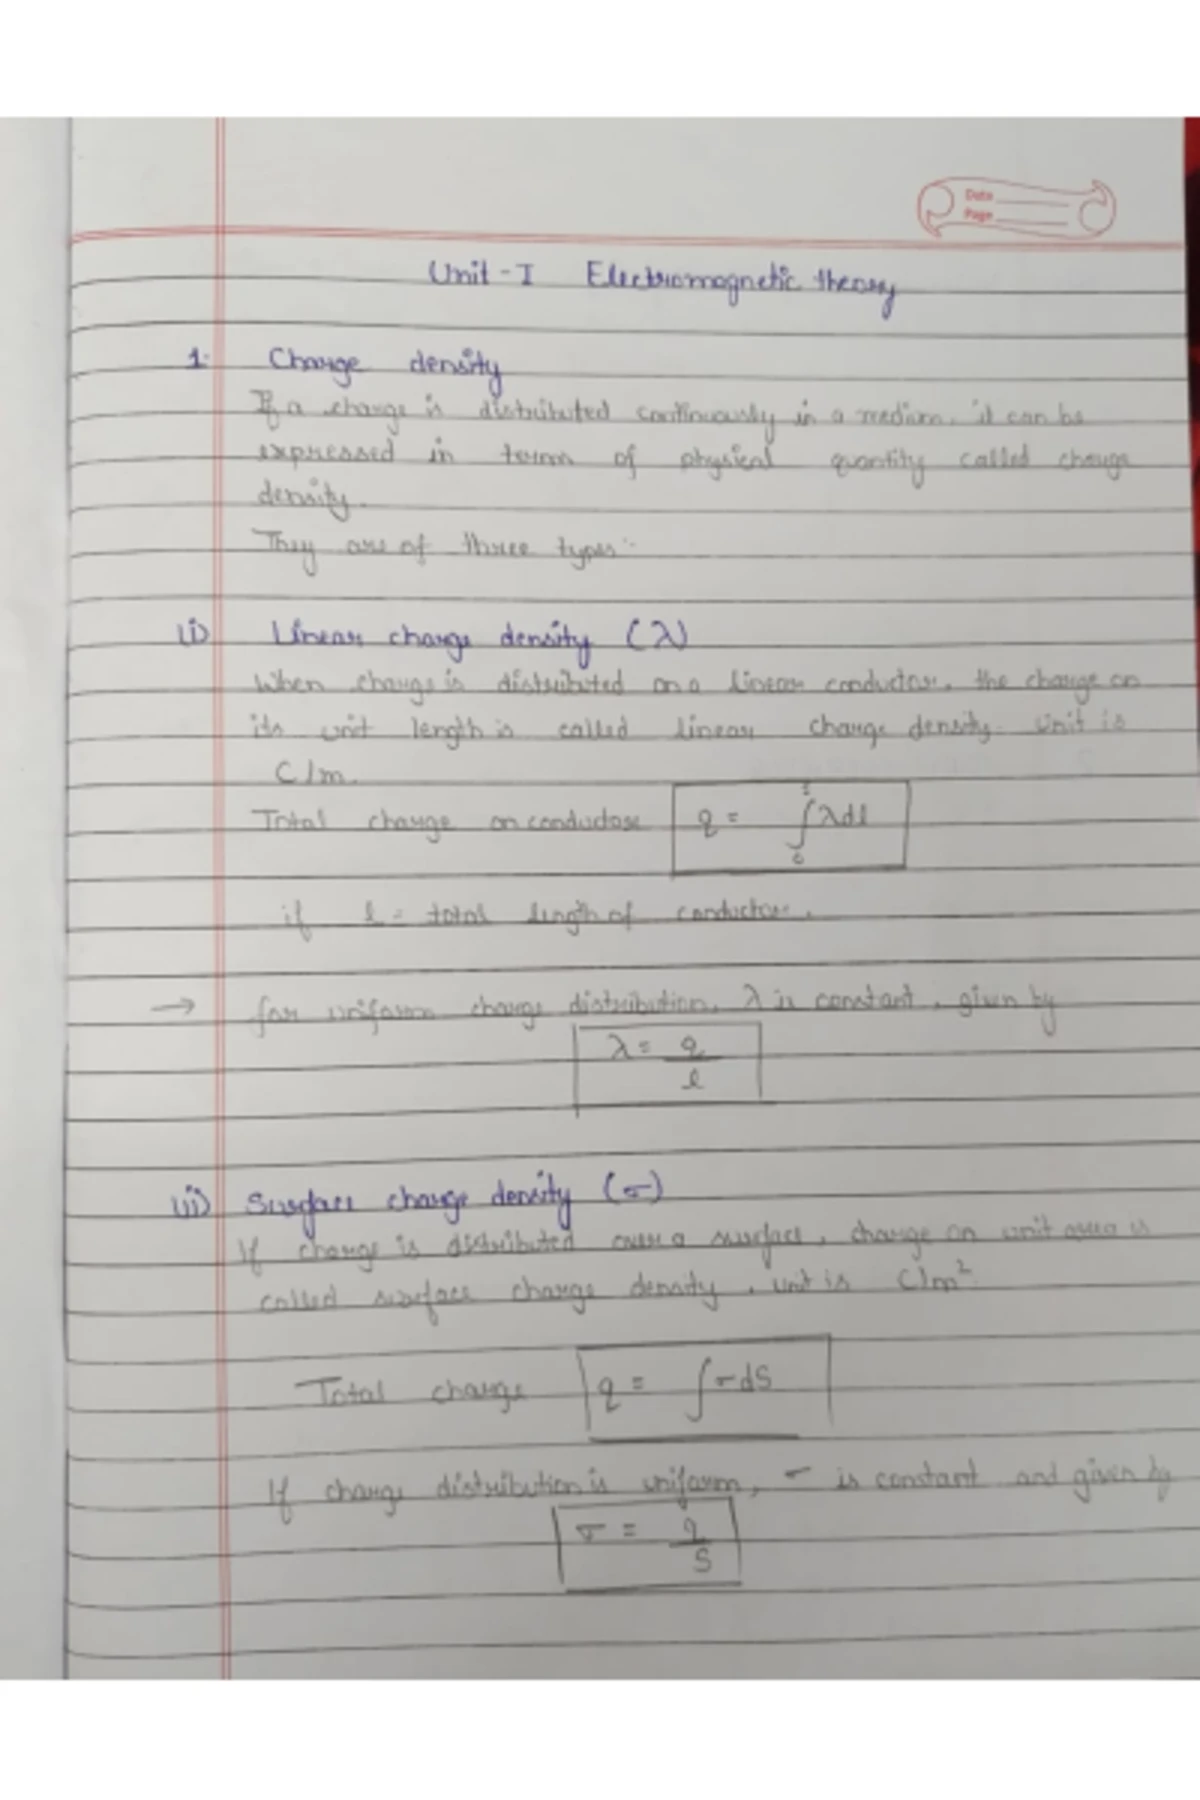 Date
Page
Unit - I Electromagnetic theory
1. Charge density
If a charge is distributed continuously in a medium, it can be
expressed in terms of physical quantity called charge
density.
They are of three types:-
(i) Linear charge density (λ)
When charge is distributed on a linear conductor, the charge on
its unit length is called linear charge density. Unit is
C/m.
Total charge on conductor q = ∫₀ˡ λdl
if l = total length of conductor.
→ for uniform charge distribution, λ is constant, given by
λ = q/l
(ii) Surface charge density (σ)
If charge is distributed over a surface, charge on unit area is
called surface charge density, unit is C/m²
Total charge q = ∫σdS
If charge distribution is uniform, σ is constant and given by
σ = q/S